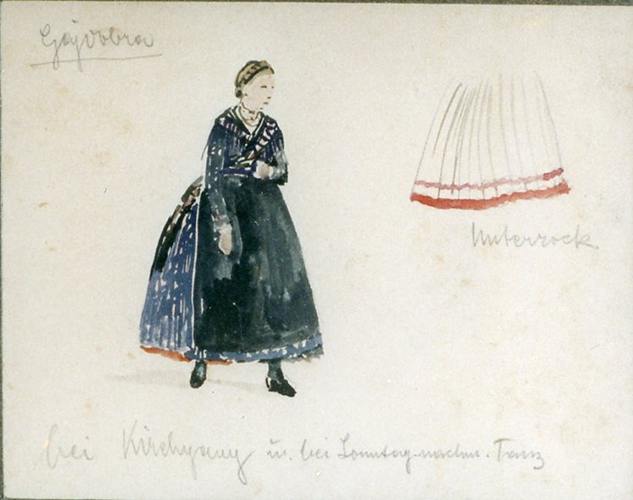 Gajdobra
Unterrock
bei Kirchgang u. bei Sonntag-nachm. Tanz